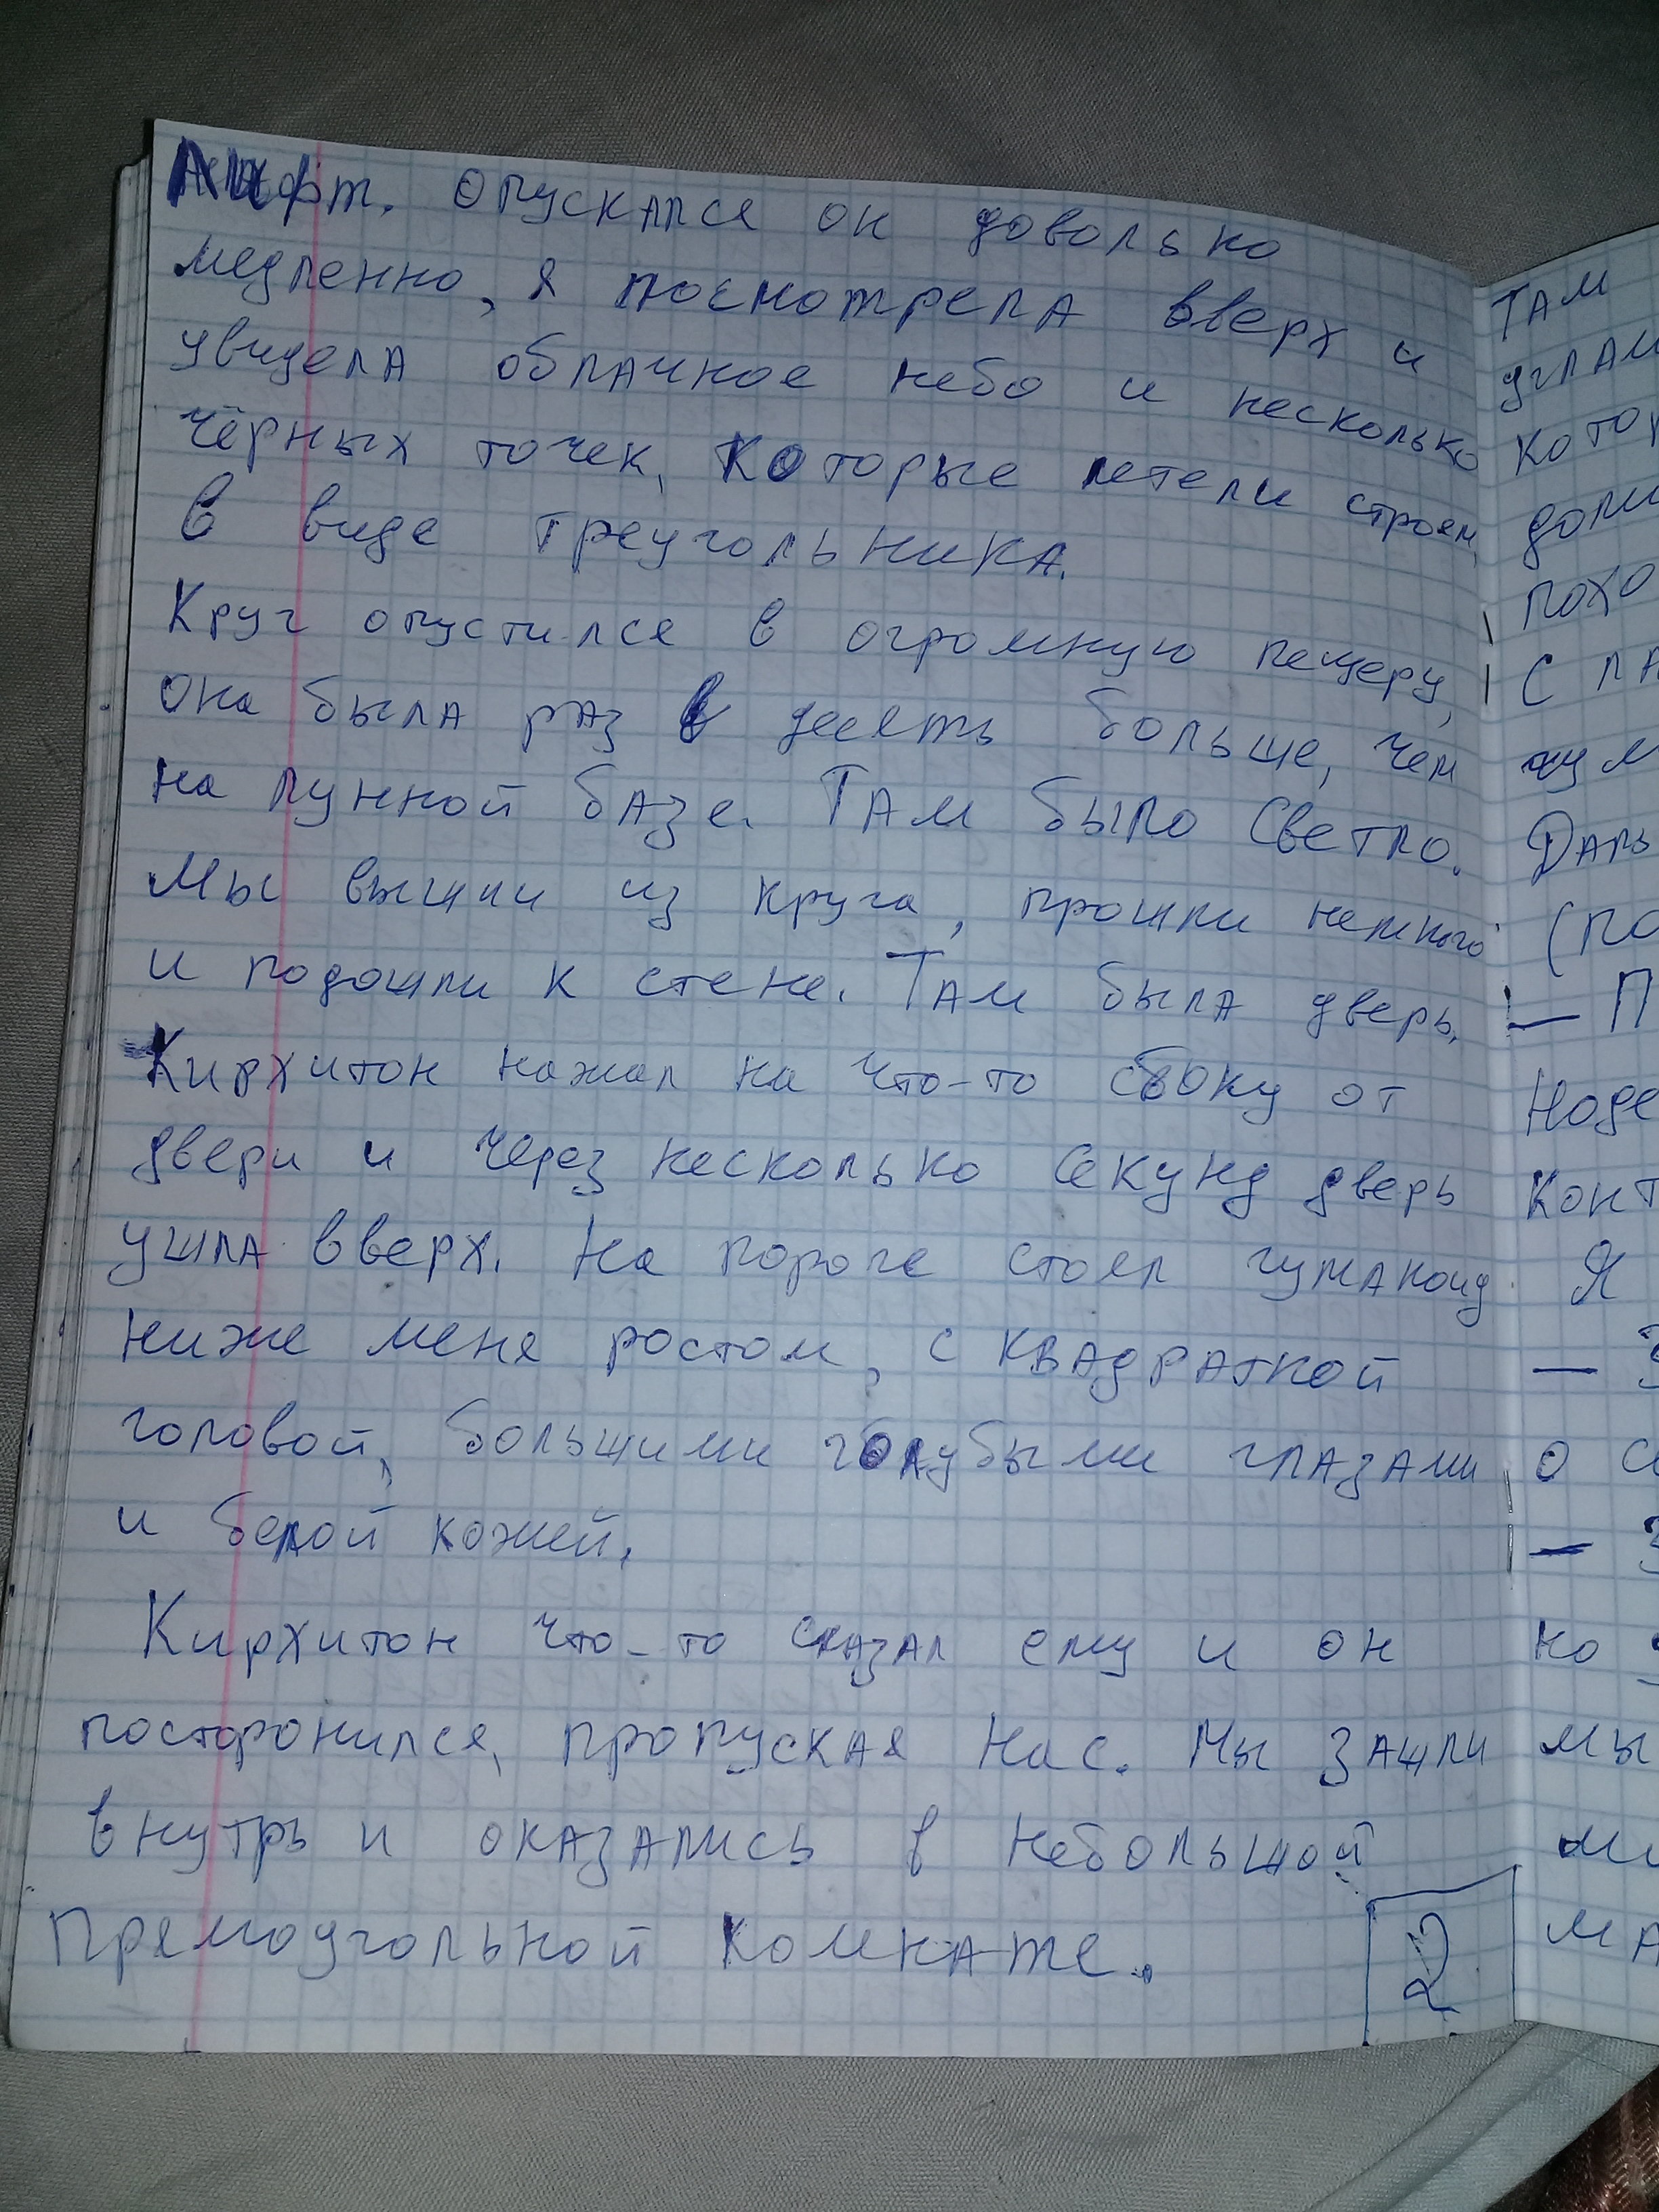 Лифт. Опускался он довольно
медленно, я посмотрела вверх и
увидела облачное небо и несколько
чёрных точек, которые летели строем,
в виде треугольника.
Круг опустился в огромную пещеру,
она была раз в десять больше, чем
на лунной базе. Там было светло.
Мы вышли из круга, прошли немного
и подошли к стене. Там была дверь.
Кирхитон нажал на что-то сбоку от
двери и через несколько секунд дверь
ушла вверх. На пороге стоял гуманоид
ниже меня ростом, с квадратной
головой, большими голубыми глазами
и белой кожей.
Кирхитон что-то сказал ему и он
посторонился, пропуская нас. Мы зашли
внутрь и оказались в небольшой
прямоугольной комнате.
2
Там
углам
С
Я
о
но
мы